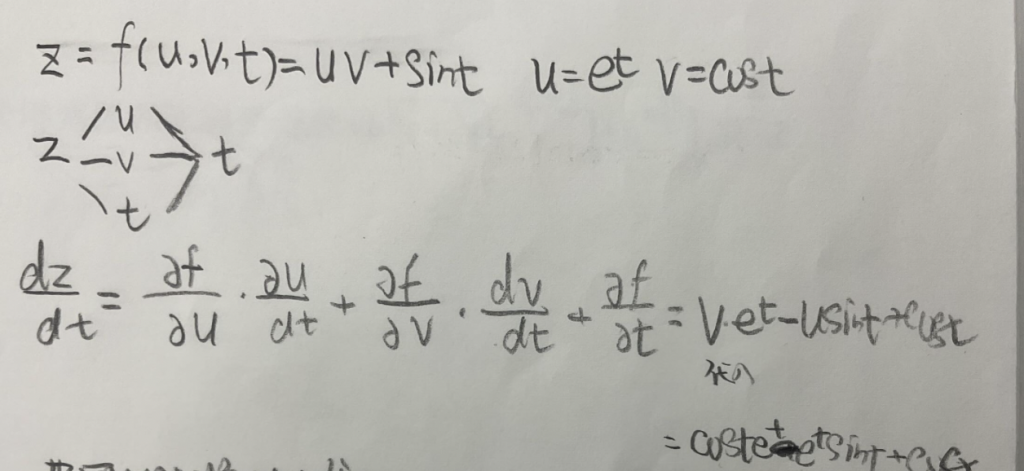 z = f(u,v,t) = uv + sint u = e^t v = cost
z u
v t
t
dz/dt = ∂f/∂u · ∂u/dt + ∂f/∂v · dv/dt + ∂f/∂t = v·e^t - usint + cost
代入
= cost e^t - e^t sint +